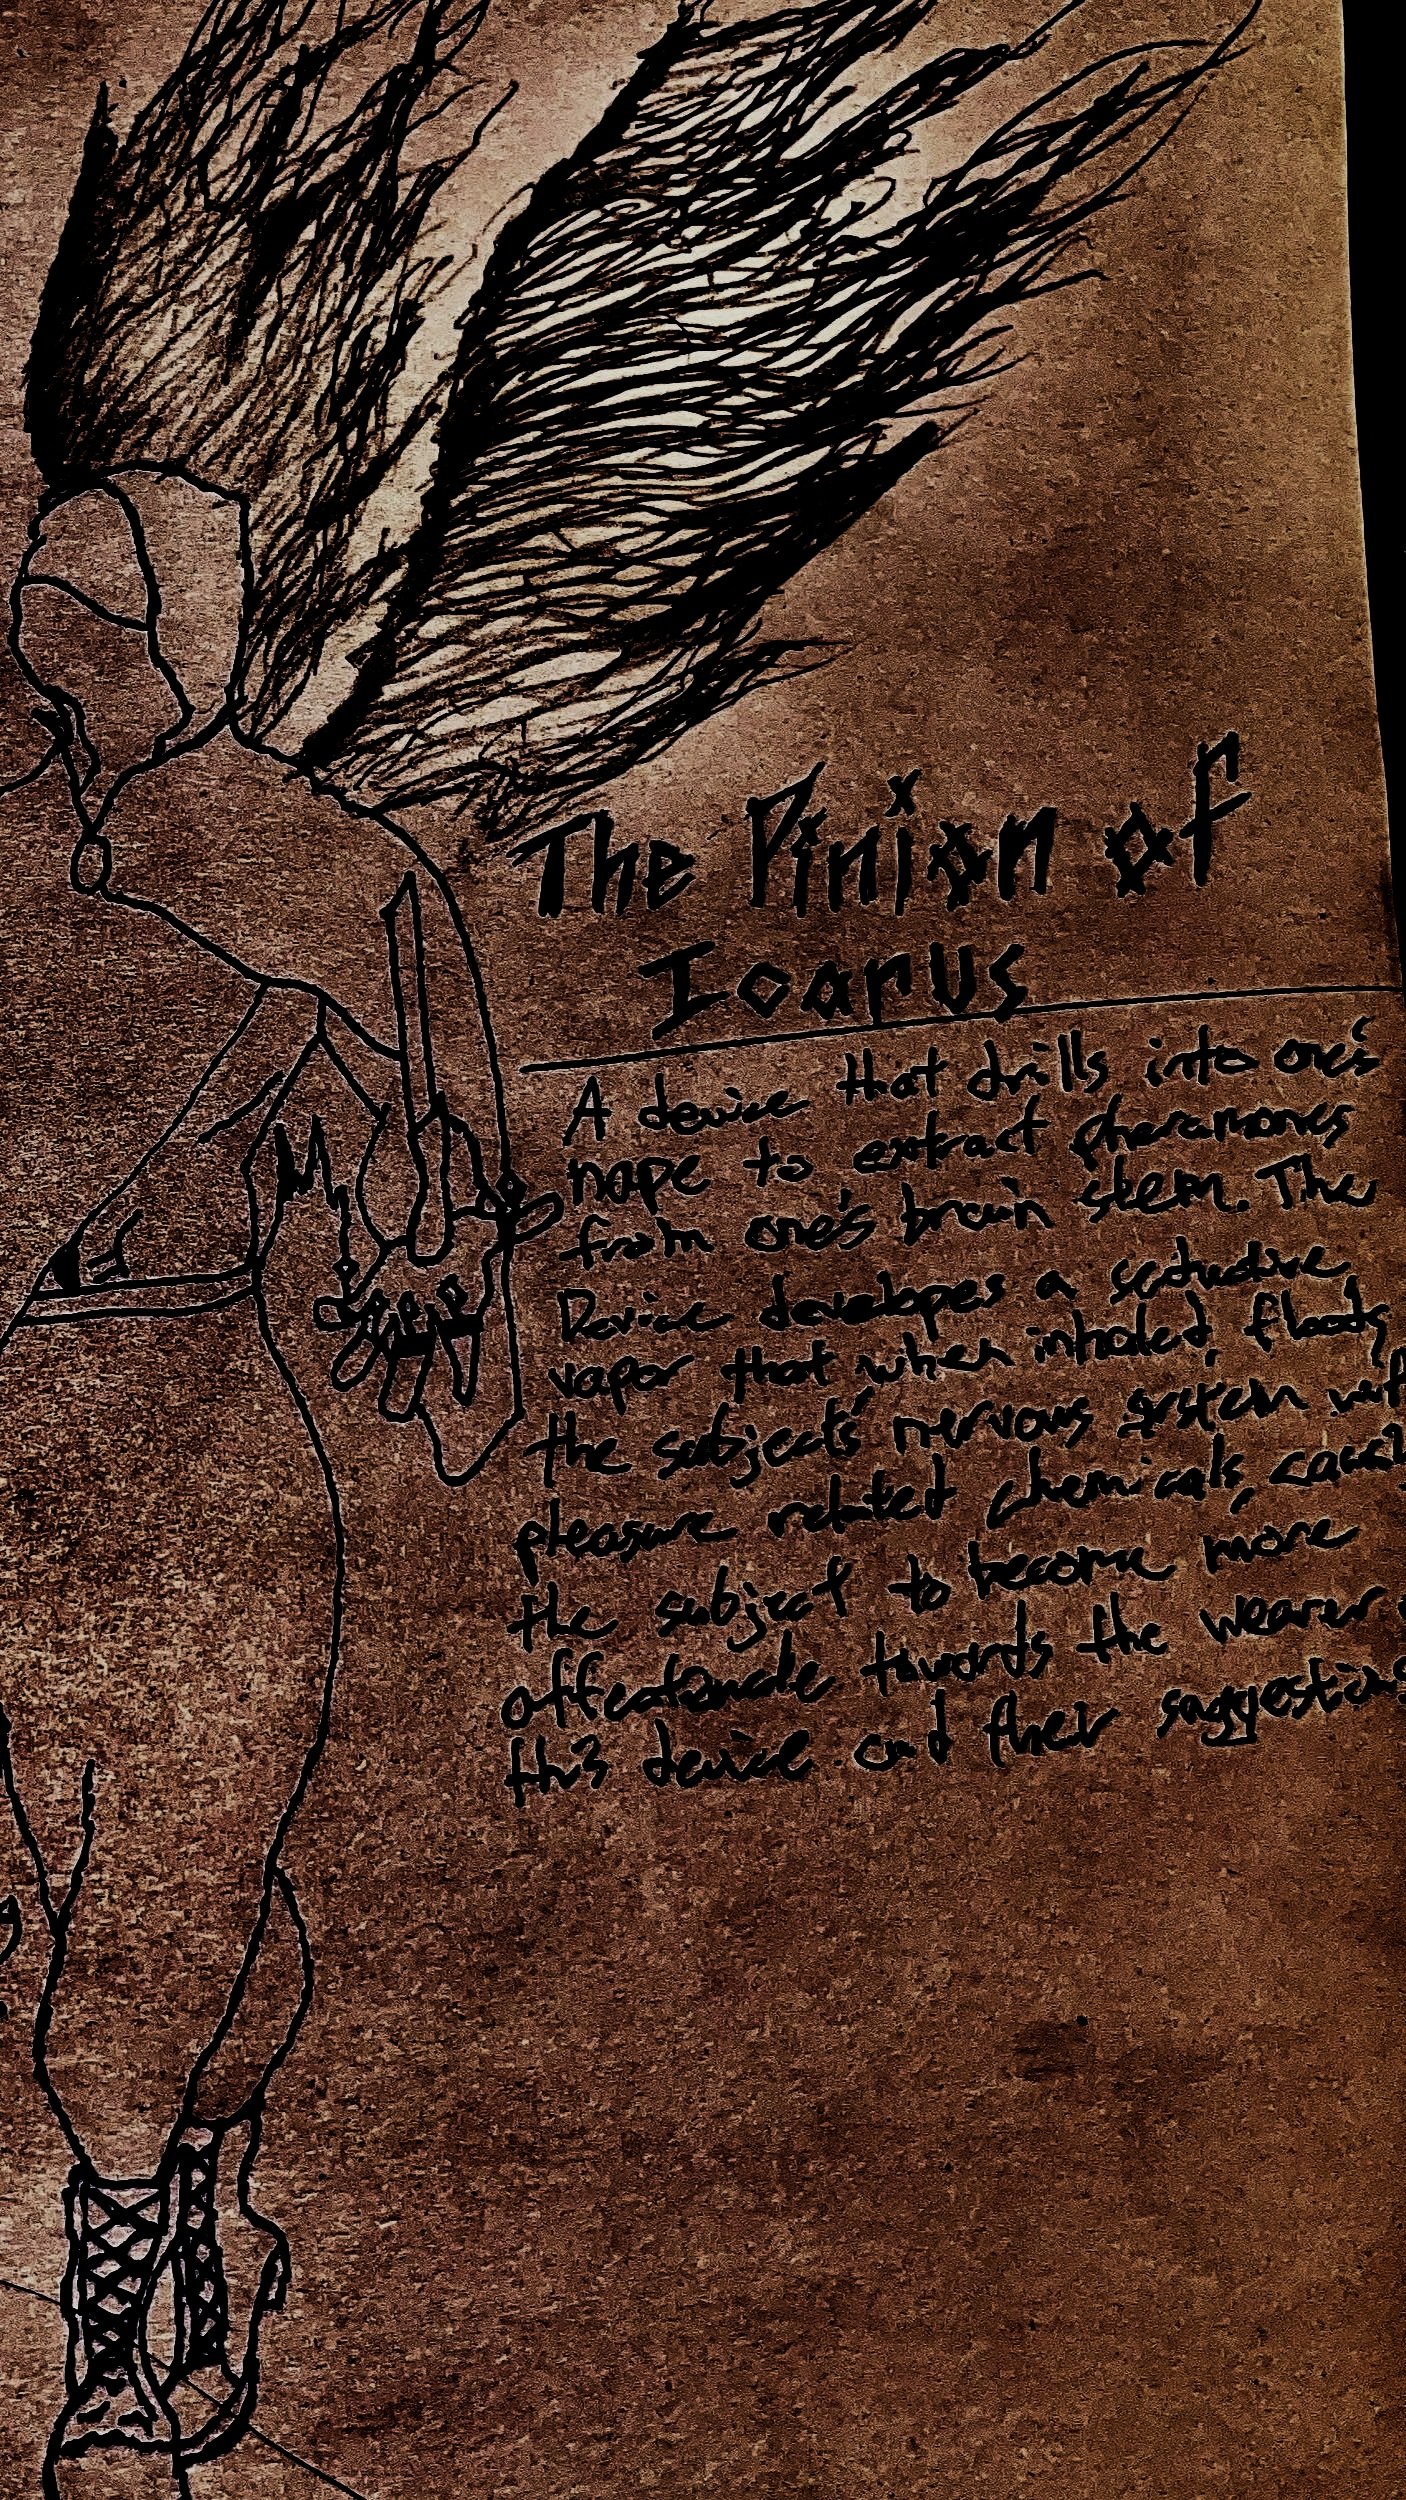 The Pinion of
Icarus
A device that drills into one's
nape to extract pheramones
from one's brain stem. The
Device developes a seductive
vapor that when inhaled, floods
the subject's nervous system
pleasure related chemicals,
the subject to become more
affectionate towards the wearer
this device and their